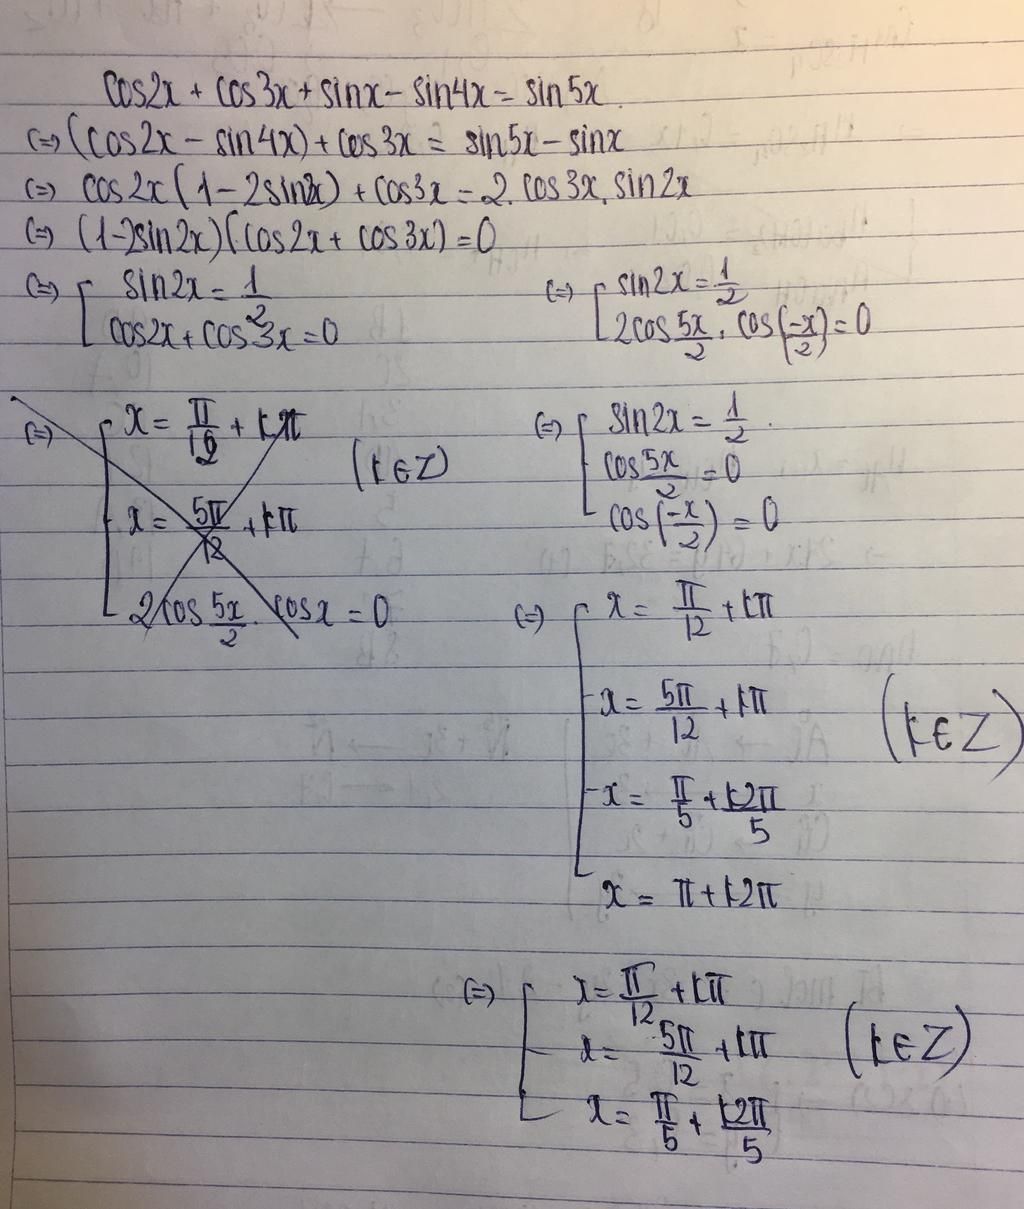 cos2x + cos3x + sinx - sin4x = sin5x.
(=) (cos2x - sin4x) + cos3x = sin5x - sinx
(=) cos2x (1 - 2sin2x) + cos3x = 2.cos3x.sin2x
(=) (1-2sin2x)(cos2x + cos3x) = 0
(=) [ sin2x = 1/2
cos2x + cos3x = 0
(=) [ sin2x = 1/2
2cos 5x/2 . cos(-x/2) = 0
(=) [ x = π/12 + kπ
x = 5π/12 + kπ
2cos 5x/2 . cosx = 0
(k∈Z)
(=) [ sin2x = 1/2 .
cos 5x/2 = 0
cos(-x/2) = 0
(=) [ x = π/12 + kπ
x = 5π/12 + kπ
x = π/5 + k2π/5
x = π + k2π
(k∈Z)
(=) [ x = π/12 + kπ
x = 5π/12 + kπ
x = π/5 + k2π/5
(k∈Z)